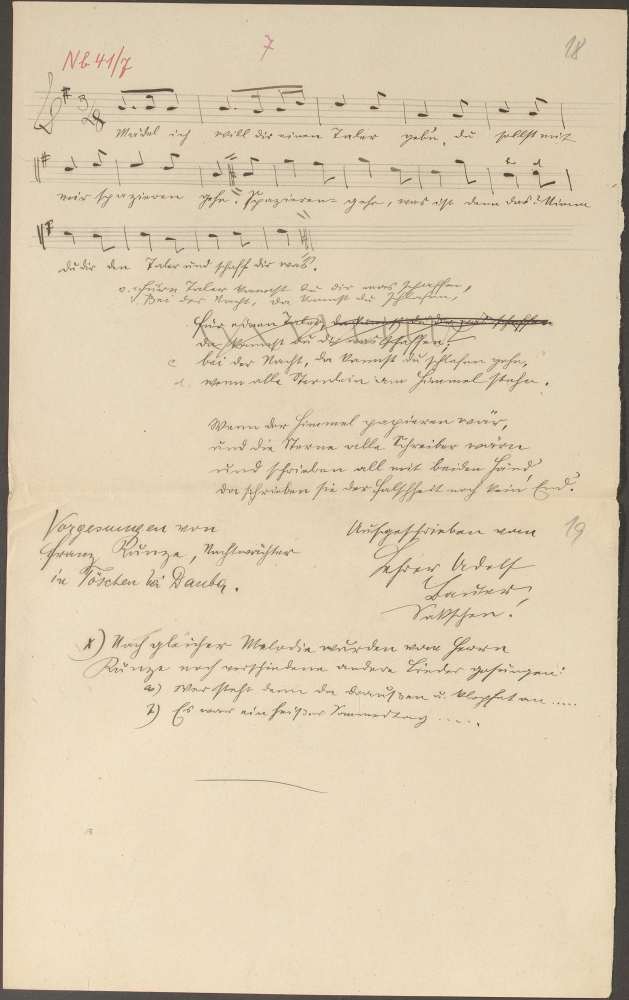 7
18
Nb 41/7
3/8
Maidel ich will dir einen Taler gebn, du sollst mit
mir spazieren gehn. Spazieren- gehn, was ist denn das? Nimm
du dir den Taler und schaff dir was.
Fürn Taler kannst du dir was schaffen,
Bei der Nacht, da kannst du schlafen,
für einen Taler, da kannst du dir was schaffen
da kannst du dir was schaffen,
bei der Nacht, da kannst du schlafen gehn,
wenn alle Sternlein am Himmel stehn.
Wenn der Himmel papieren wär,
und die Sterne alle Schreiber wärn
und schrieben all mit beiden Händ
da schrieben sie der Falschheit noch kein End.
Vorgesungen von
Franz Kunze, Nachtwächter
in Töschen bei Dauba.
Aufgeschrieben vom
19
Lehrer Adolf
Bauer,
x) Nach gleicher Melodie wurden vom Herrn
Kunze noch verschiedene andere Lieder gesungen:
a) Wer steht denn da draußen u. klopfet an .....
b) Es war ein heißer Sommertag .....